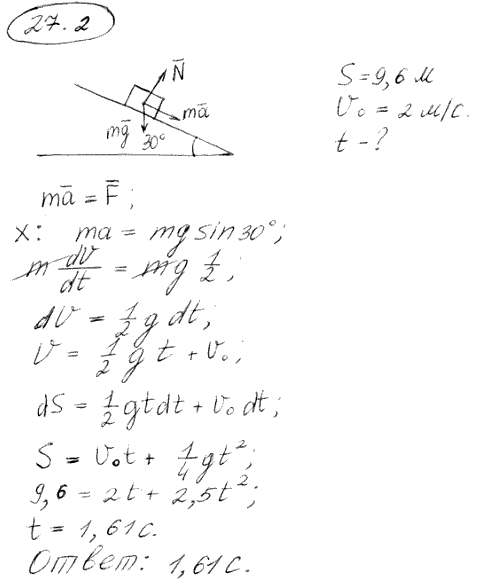 27.2
N̄
S = 9,6 м
mā
V₀ = 2 м/с.
mḡ 30°
t - ?
mā = F̄ ;
x: ma = mg sin 30° ;
m dv/dt = mg 1/2 ;
dV = 1/2 g dt ;
V = 1/2 g t + V₀ ;
dS = 1/2 gtdt + V₀ dt ;
S = V₀t + 1/4 gt² ;
9,6 = 2t + 2,5t² ;
t = 1,61 с.
Ответ: 1,61 с.